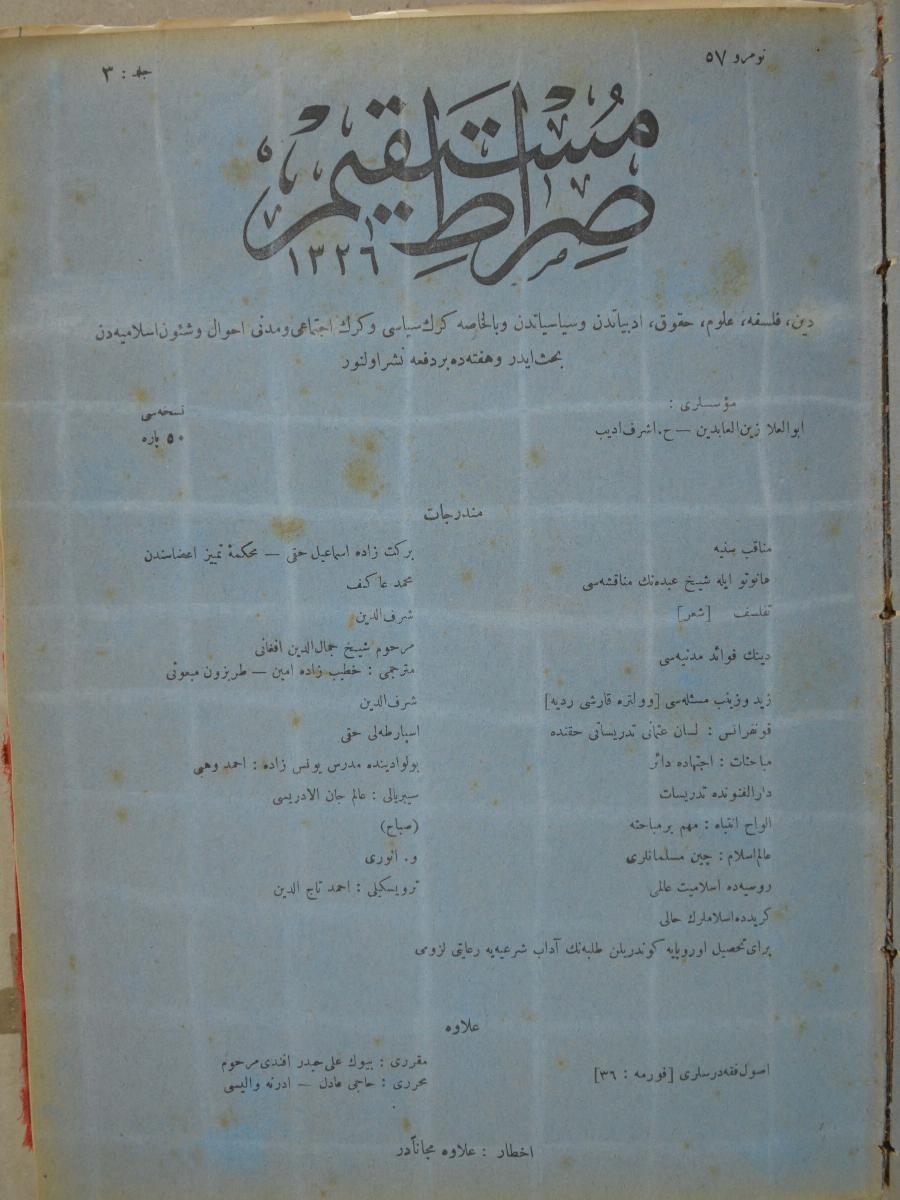 نومرو ٥٧
جلد : ٣
صراط مستقيم
١٣٢٦
دين، فلسفه، علوم، حقوق، ادبياتدن وسياسياتدن وبالخاصه كرك سياسى وكرك اجتماعى ومدنى احوال وشئون اسلاميه‌دن
بحث ايدر وهفته‌ده بر دفعه نشر اولنور
مؤسسلرى :
ابوالعلا زين‌العابدين — ح. اشرف اديب
نسخه‌سى
٥٠ پاره
مندرجات
مناقب سنيه
بركت زاده اسماعيل حقى — محكمهٔ تمييز اعضاسندن
هانوتو ايله شيخ عبده‌نك مناقشه‌سى
محمد عاكف
تفلسف [شعر]
شرف‌الدين
دينك فوائد مدنيه‌سى
مرحوم شيخ جمال‌الدين افغانى
مترجمى : خطيب زاده امين — طربزون مبعوثى
زيد وزينب مسئله‌سى [وولتره قارشى رديه]
شرف‌الدين
قونفرانس : لسان عثمانى تدريساتى حقنده
اسپارطه‌لى حقى
مباحثات : اجتهاده دائر
بولوادينده مدرس يونس زاده : احمد وهبى
دارالفنونده تدريسات
سيبريالى : عالم جان الادريسى
الواح انتباه : مهم بر مباحثه
(صباح)
عالم‌اسلام : چين مسلمانلرى
و. انورى
روسيه‌ده اسلاميت عالمى
ترويسكيلى : احمد تاج الدين
كريدده اسلاملرك حالى
براى تحصيل اوروپايه كوندريلن طلبه‌نك آداب شرعيه‌يه رعايتى لزومى
علاوه
اصول فقه درسلرى [فورمه : ٣٦]
مقررى : بيوك على حيدر افندى مرحوم
محررى : حاجى عادل — ادرنه واليسى
اخطار : علاوه مجاناً‌در